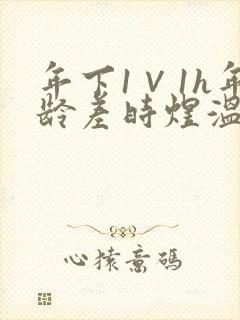 年下1V1h年
龄差时煜温
心猿意码